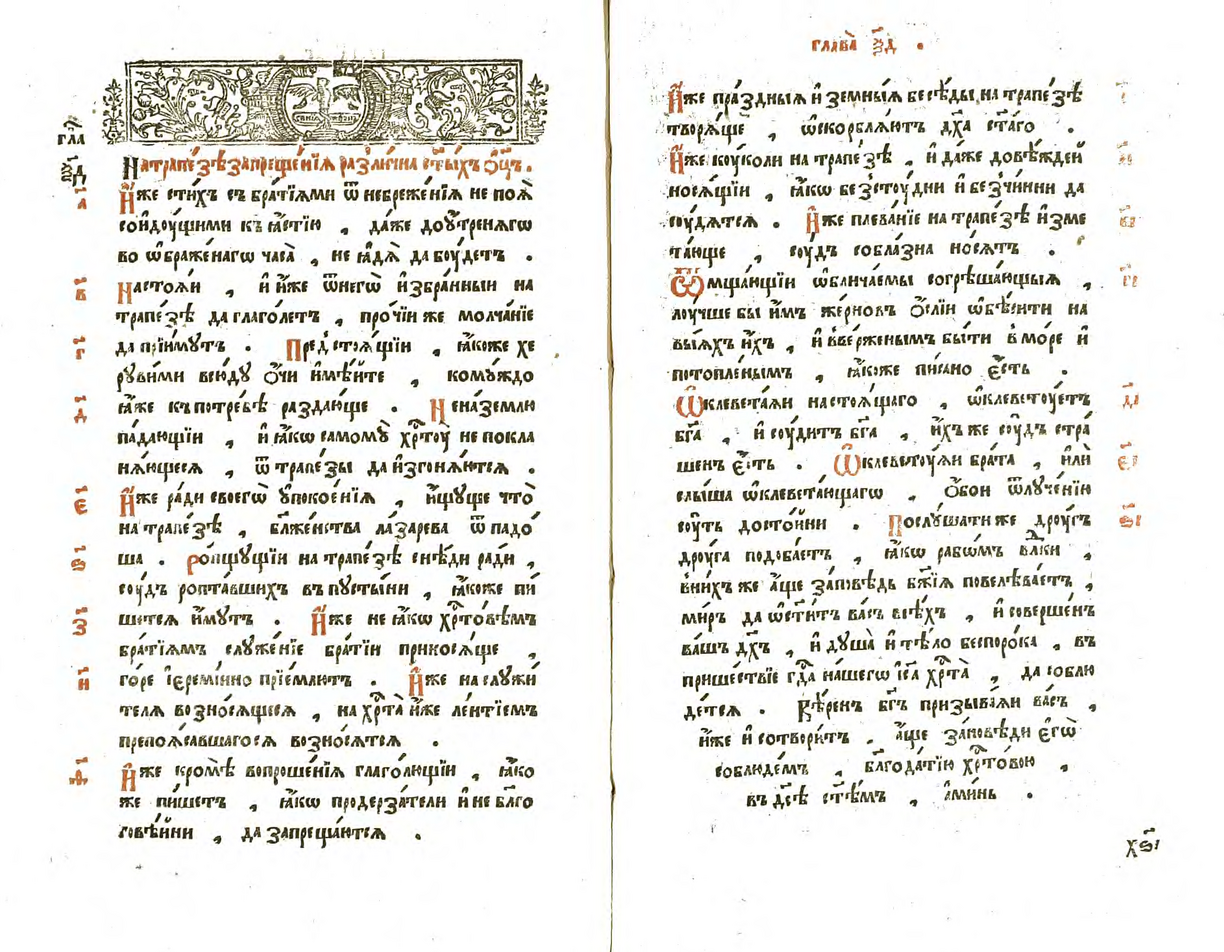 гла
ѯ҃д
На трапе́зѣ запреще́нїѧ разли́чна ст҃ы́хъ ѻ҆ц҃ъ.
а҃ И҆́же сти́хъ съ бра́тїѧми ѿ небреже́нїѧ не поѧ̀
соидоу́щими къ ꙗ҆стїю , да́же до оу҆́тренѧгѡ
во ѡ҆браже́нагѡ часа̀ , не ꙗ҆ды́й да боу́детъ .
в҃ Настоѧ́и , и҆ и҆́же ѿ негѡ̀ и҆збра́нныи на
трапе́зѣ да глаго́летъ , про́чїи же молча́нїе
г҃ да прїи́мутъ . Предстоѧ́щїи , ꙗ҆́коже хе
рꙋви́ми всю́дꙋ ѻ҆́чи и҆мѣ́ите , комꙋ́ждо
д҃ ꙗ҆́же къ потре́бѣ раздаю́ще . Не на землю
па́дающїи , и҆ ꙗ҆́кѡ самомꙋ̀ хрⷭ҇тоу̀ не покла
нѧ́ющесѧ , ѿ трапе́зы да и҆згонѧ́ютсѧ .
є҃ И҆́же ра́ди своегѡ̀ ᲂу҆покое́нїѧ , и҆́щꙋще что̀
на трапе́зѣ , бл҃же́нства ла́зарева ѿпадо́
ѕ҃ ша . Ропщꙋ́щїи на трапе́зѣ сне́ди ра́ди ,
соу́дъ ропта́вшихъ в пꙋсты́ни , ꙗ҆́коже пи́
з҃ шетсѧ и҆́мꙋтъ . И҆́же не ꙗ҆́кѡ хрⷭ҇то́вѣмъ
бра́тїѧмъ слꙋже́нїе бра́тїи приносѧ́ще ,
и҃ го́ре і҆еремі́ино прїе́млютъ . И҆́же на слꙋжи́
телѧ возносѧ́щиисѧ , на хрⷭ҇та̀ и҆́же ле́нтїемъ
препоѧ́савшагосѧ возно́сѧтсѧ .
ѳ҃ И҆́же кромѣ̀ вопроше́нїѧ глаго́лющїи , ꙗ҆́ко
же пи́шетъ , ꙗ҆́кѡ продерза́тели и҆ не бл҃го
говѣ́йни , да запреща́ютсѧ .
глава̀ ѯ҃д .
И҆́же пра́здныѧ и҆ земны́ѧ бесѣ́ды на трапе́зѣ
творѧ́ще , ѡ҆скорблѧ́ютъ дх҃а ст҃а́го .
И҆́же коу́коли на трапе́зѣ , и҆ да́же до вѣ́ждей
носѧ́щїи , ꙗ҆́кѡ безстоу́дни и҆ безчи́нни да
соу́дѧтсѧ . И҆́же плева́нїе на трапе́зѣ и҆зме
та́юще , соу́дъ собла́зна но́сѧтъ .
Ѿмща́ющїи ѡ҆блича́емы согрѣша́ющыѧ ,
лоу́чше бы и҆́мъ же́рновъ ѻ҆́слїи ѡ҆бѣ́сити на
вы́ѧхъ и҆́хъ , и҆ вве́рженымъ бы́ти в мо́ре и҆
потопле́нымъ , ꙗ҆́коже пи́сано є҆́сть .
Ѡ҆клевета́ѧи настоѧ́щаго , ѡ҆клевету́етъ
бг҃а , и҆ соу́дитъ бг҃а , и҆́хъ же соу́дъ стра́
шенъ є҆́сть . Ѡ҆клевету́ѧи бра́та , и҆лѝ
слы́ша ѡ҆клевета́ющагѡ , ѻ҆́бои ѿлꙋче́нїю
соу́ть досто́йни . Послꙋ́шати же дроу́гъ
дроу́га подоба́етъ , ꙗ҆́кѡ рабѡ́мъ влⷣки ,
в ни́хъ же а҆́ще за́повѣдь бж҃їѧ повелѣва́етъ ,
ми́ръ да ѡ҆ст҃и́тъ ва́съ всѣ́хъ , и҆ соверше́нъ
ва́шъ дх҃ъ , и҆ дꙋша̀ и҆ тѣ́ло беспоро́ка , въ
прише́ствїе гдⷭ҇а на́шегѡ і҆с҃а хрⷭ҇та̀ , да соблю
де́тсѧ . Вѣ́ренъ бг҃ъ призыва́ѧи ва́съ ,
и҆́же и҆ сотвори́тъ . а҆́ще за́повѣди є҆гѡ̀
соблюде́мъ , бл҃года́тїю хрⷭ҇то́вою ,
въ дс҃ѣ ст҃ѣ́мъ , а҆ми́нь .
хѕ҃і